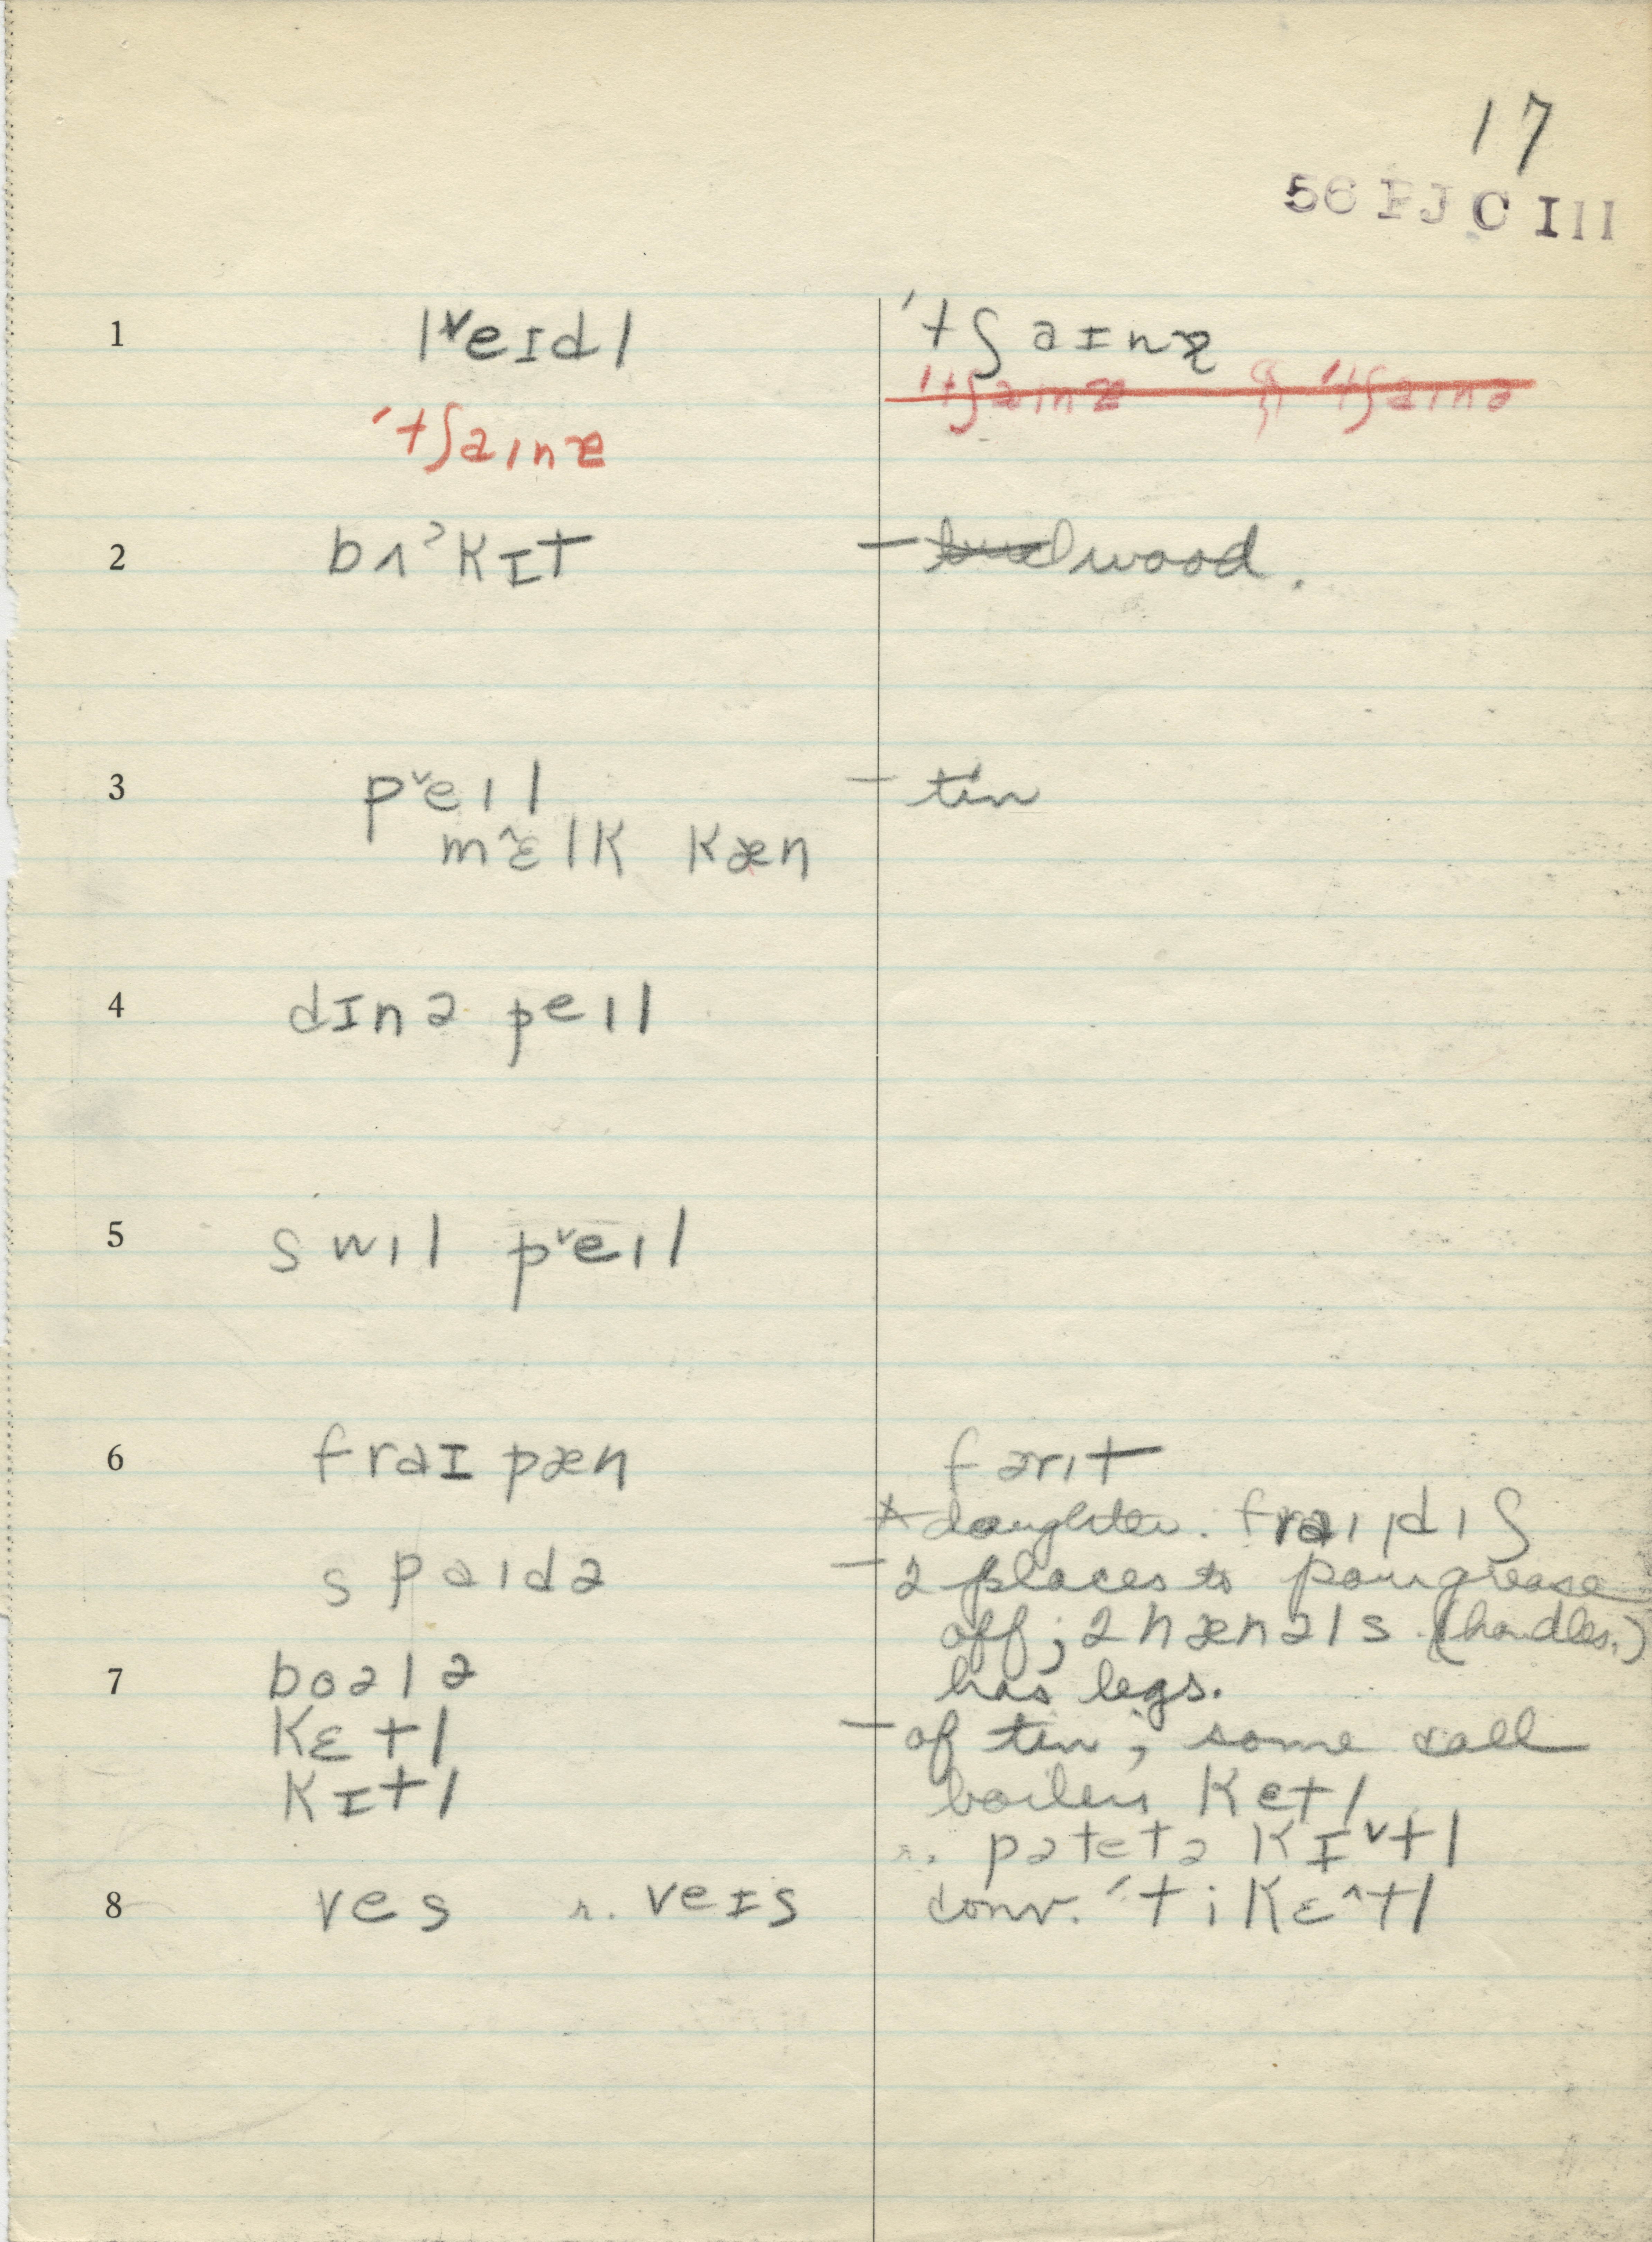 17
56 PJC III
1 l˅eɪdl ˈtʃaɪnə
ˈtʃaɪnə
2 bʌ˃kɪt – wood.
3 p˅eɪl – tin
m˄ɛlk kæn
4 dɪnə peɪl
5 swɪl p˅eɪl
6 fraɪ pæn fərɪt
daughter. fraɪ ˌdɪʃ
spaɪdə – 2 places to pour grease
off; 2 hænəls (handles.)
7 boələ has legs.
kɛtl – of tin; some call
kɪtl boilers ketl
r. pətetə kɪ˅tl
8 ves r. veɪs conv. ˈti kɛ˄tl